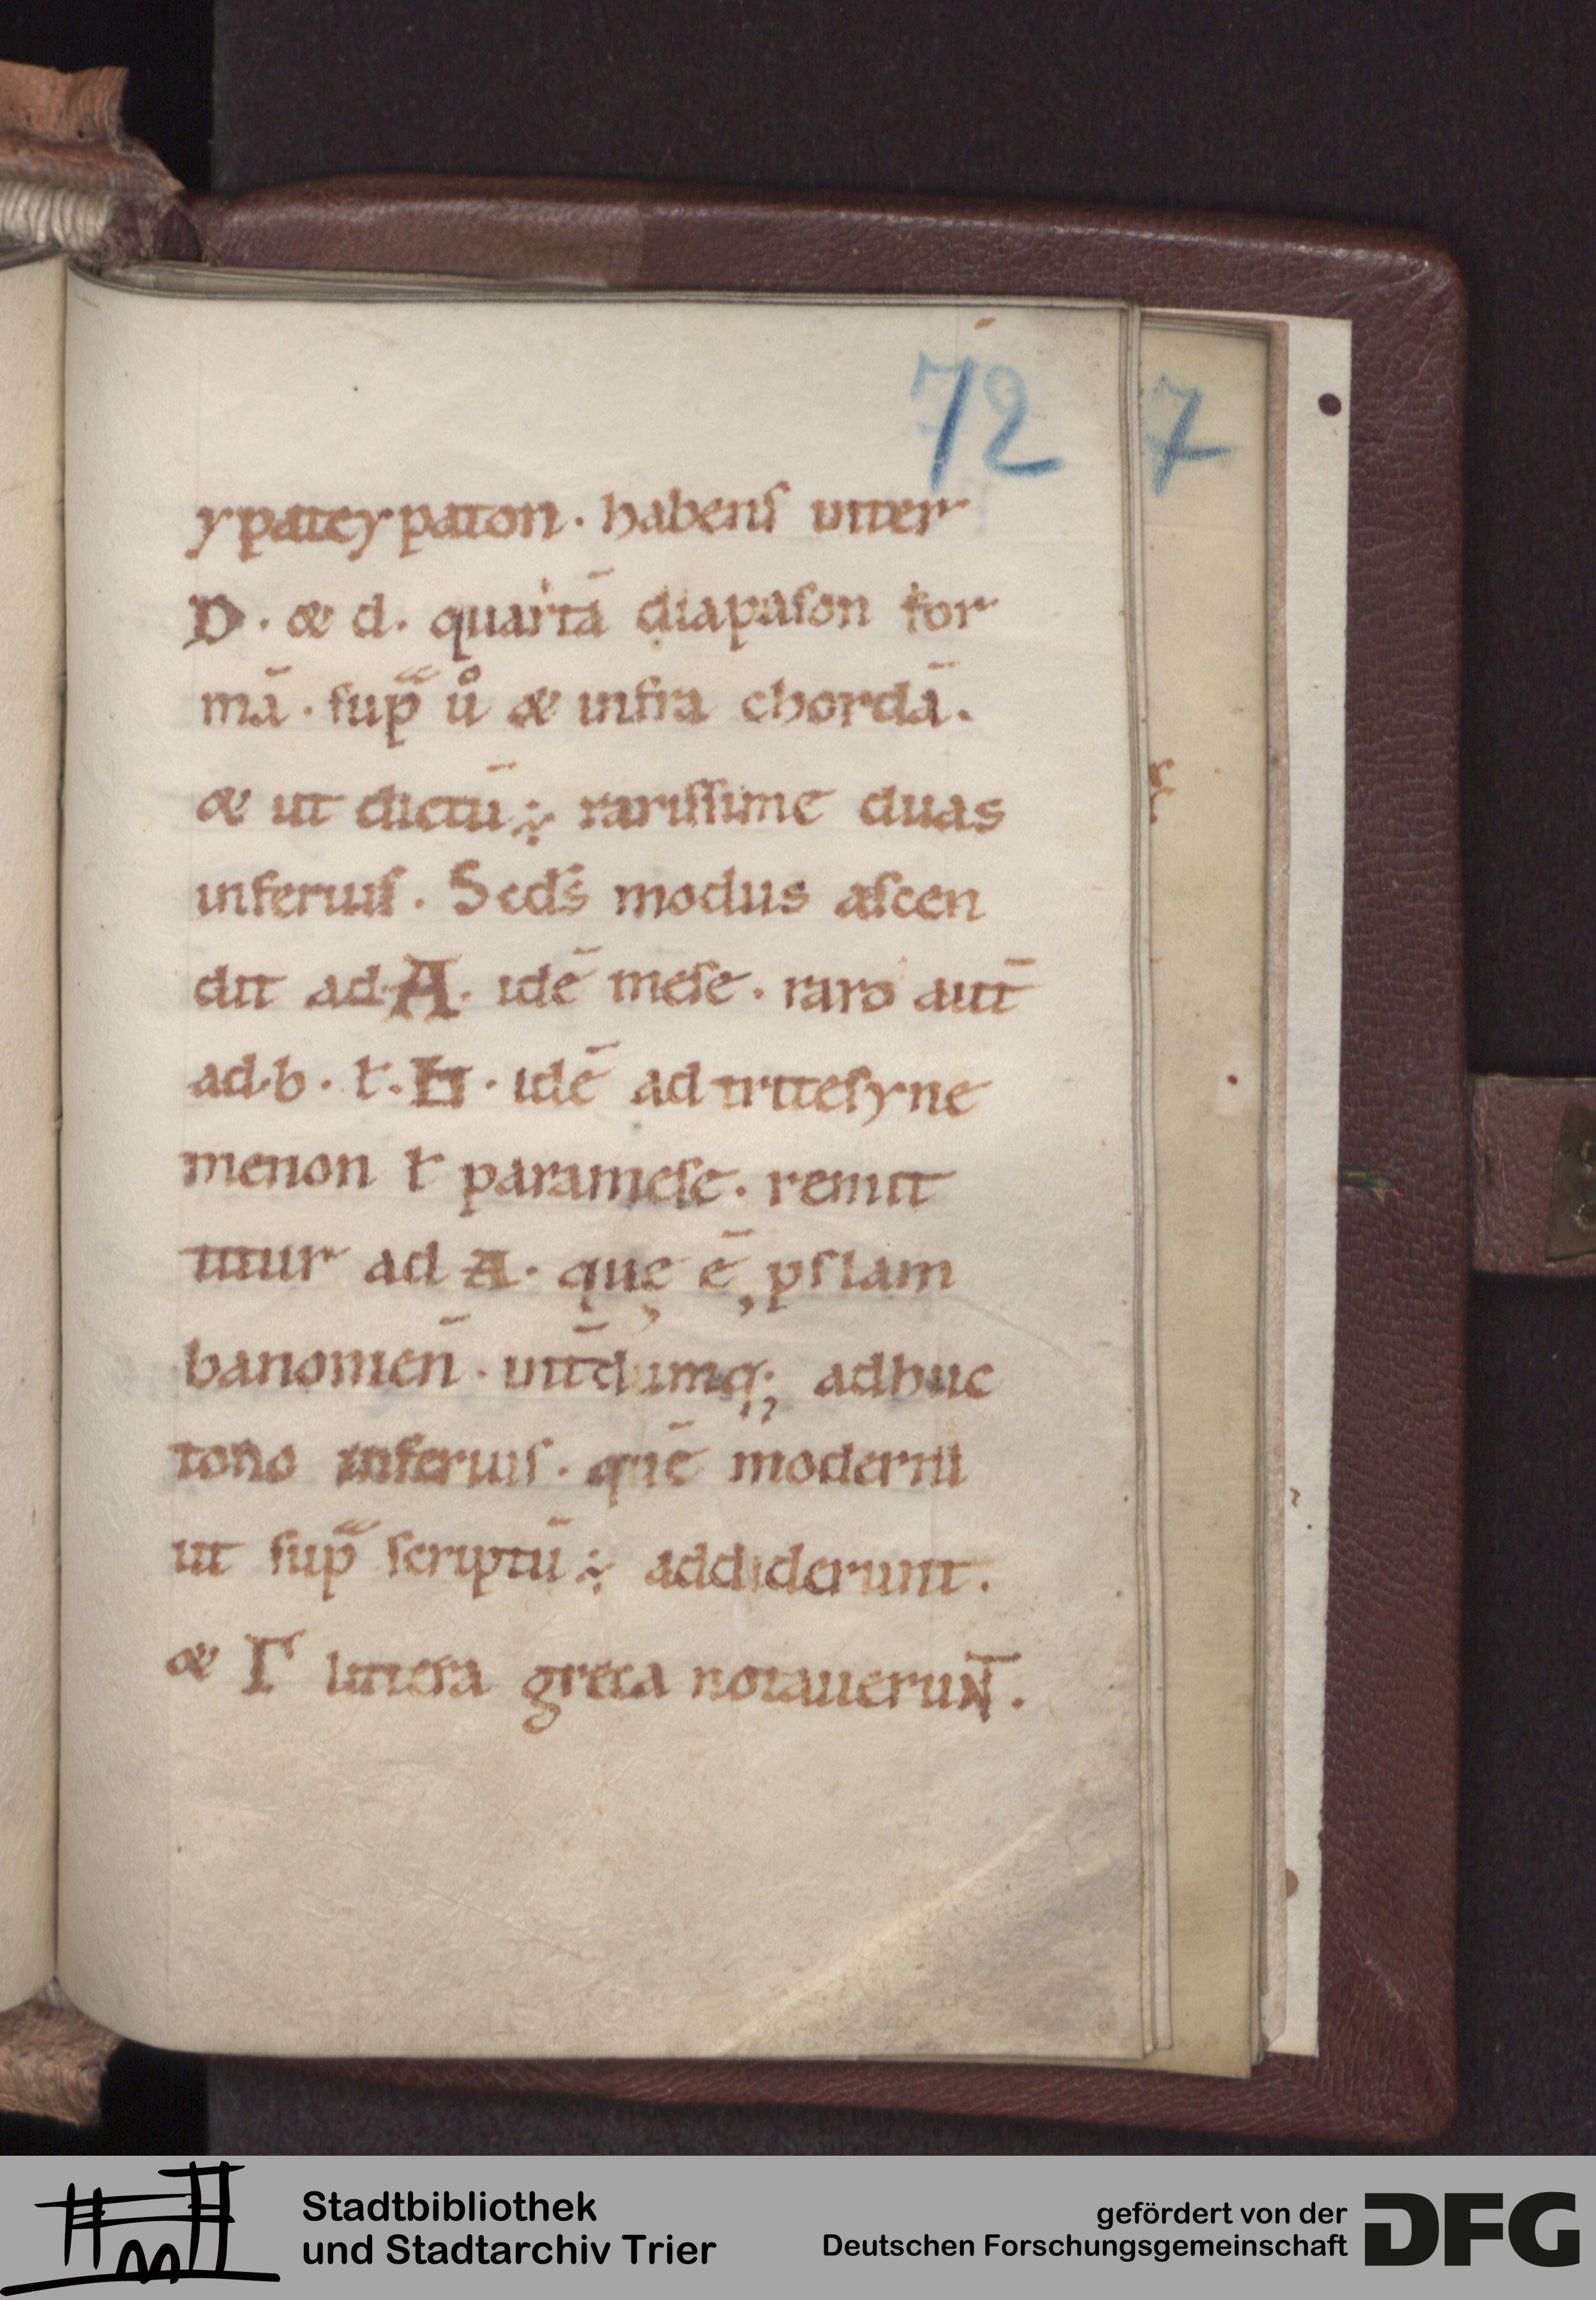 72
7
ypateypaton · habens inter
D · & d · quartā diapason for
mā · sup̄ ů & infra chordā.
& ut dictū ÷ rarissime duas
inferius · Scds̄ modus ascen
dit ad · A · idē mese · raro aut̄
ad · b · ł · ♮ · idē ad tritesyne
menon ł paramese · remit
titur ad A · quę ē pslam
banomen̄ · int̄dumq; adhuc
tono inferius · quē moderni
ut sup̄ scriptū ÷ addiderunt.
& Γ littera greca notauerun̄t.
Stadtbibliothek
und Stadtarchiv Trier
gefördert von der
Deutschen Forschungsgemeinschaft
DFG